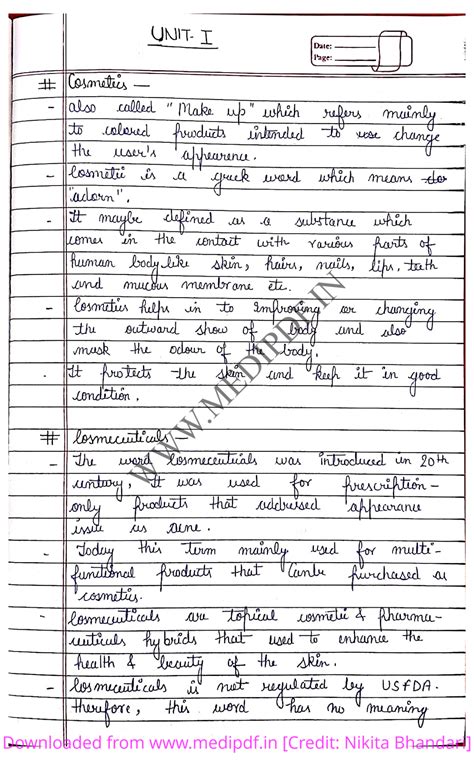 UNIT- I
Date:
Page:
# Cosmetics —
- also called "Make up" which refers mainly
to colored products intended to use change
the user's appearence.
- Cosmetic is a greek word which means
"adorn".
- It maybe defined as a substance which
comes in the contact with various parts of
human body like skin, hairs, nails, lips, teeth
and mucous membrane etc.
- Cosmetics helps in to improving or changing
the outward show of body and also
mask the odour of the body.
- It protects the skin and keep it in good
condition.
# Cosmeceuticals -
- The word Cosmeceuticals was introduced in 20th
century, It was used for prescription-
only products that addressed appearance
issue as acne.
- Today this term mainly used for multi-
functional products that canbe purchased as
cosmetics.
- Cosmeceuticals are topical cosmetic & pharma-
ceuticals hybrids that used to enhance the
health & beauty of the skin.
- Cosmeceuticals is not regulated by USFDA.
therefore, this word has no meaning
WWW.MEDIPDF.IN
Downloaded from www.medipdf.in [Credit: Nikita Bhandari]